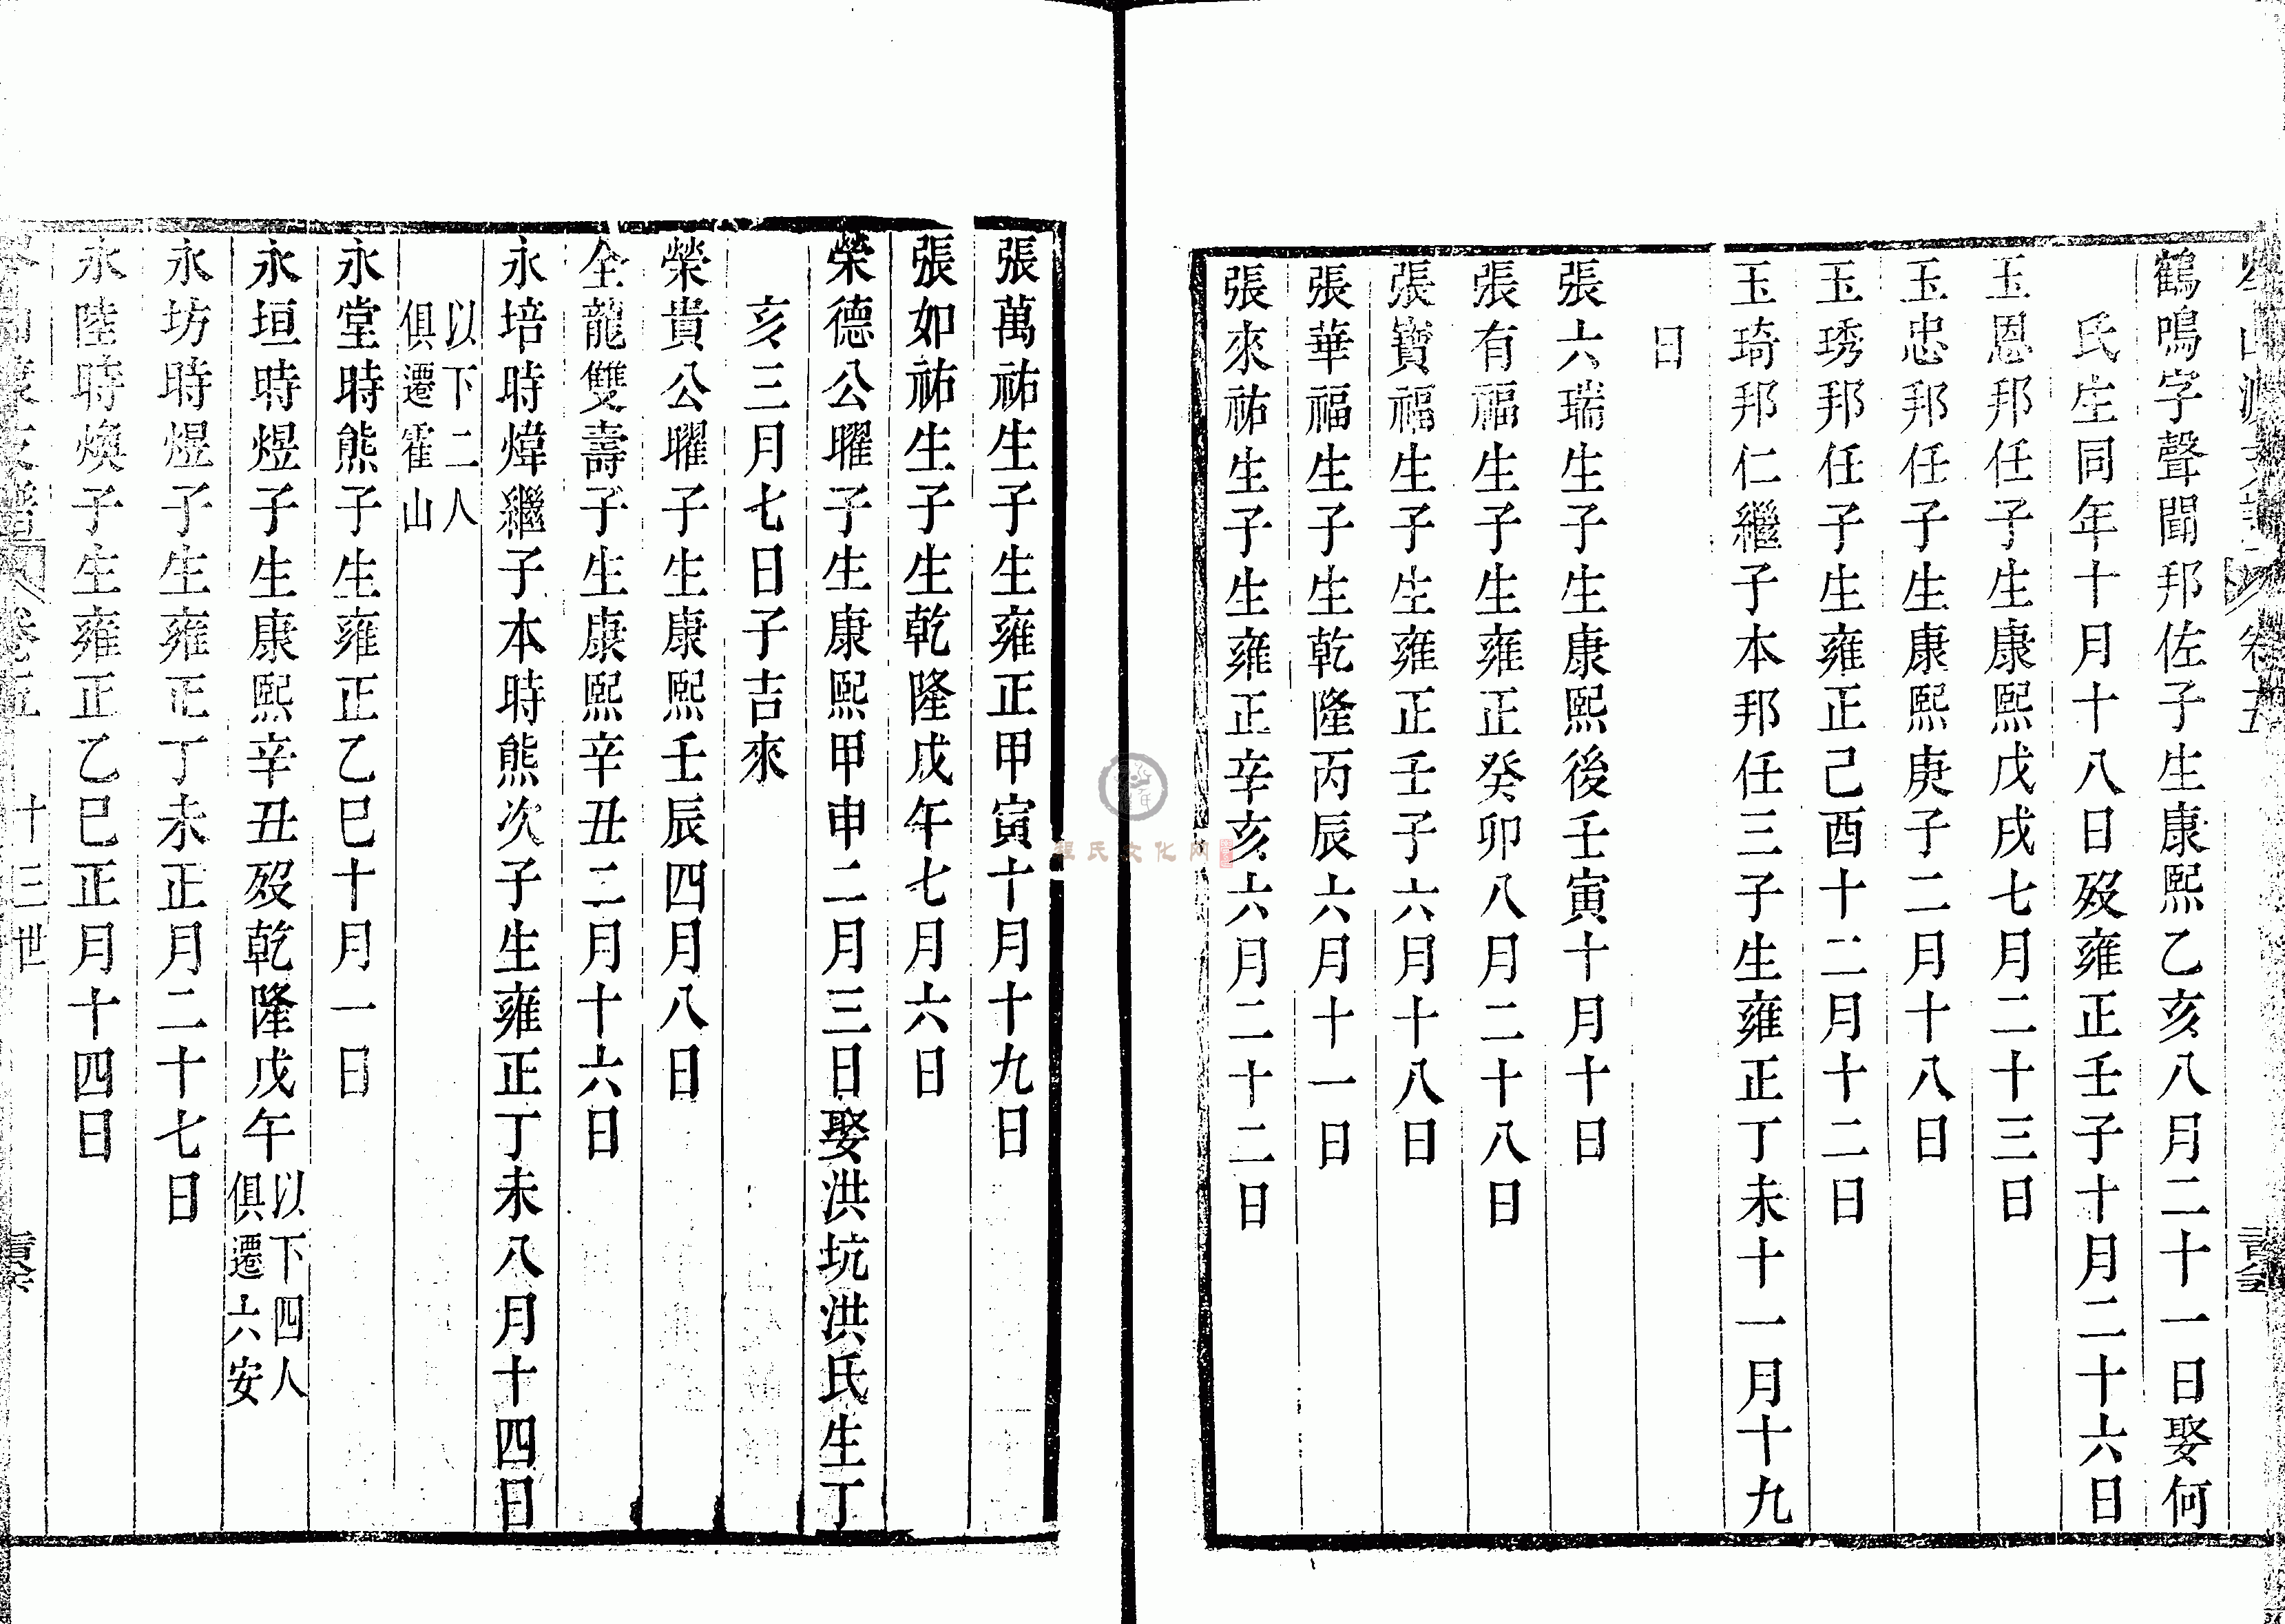 鶴鳴字聲聞邦佐子生康熙乙亥八月二十一日娶何
氏生同年十月十八日歿雍正壬子十月二十六日
玉恩邦任子生康熙戊戌七月二十三日
玉忠邦任子生康熙庚子二月十八日
玉琇邦任子生雍正己酉十二月十二日
玉琦邦仁繼子本邦任三子生雍正丁未十一月十九
日
張六瑞生子生康熙後壬寅十月十日
張有福生子生雍正癸卯八月二十八日
張寶福生子生雍正壬子六月十八日
張華福生子生乾隆丙辰六月十一日
張來祐生子生雍正辛亥六月二十二日
張萬祐生子生雍正甲寅十月十九日
張如祐生子生乾隆戊午七月六日
榮德公曜子生康熙甲申二月三日娶洪坑洪氏生丁
亥三月七日子吉來
榮貴公曜子生康熙壬辰四月八日
全龍雙壽子生康熙辛丑二月十六日
永培時煒繼子本時熊次子生雍正丁未八月十四日
以下二人
俱遷霍山
永堂時熊子生雍正乙巳十月一日
永垣時煜子生康熙辛丑歿乾隆戊午以下四人
俱遷六安
永坊時煜子生雍正丁未正月二十七日
永陸時煥子生雍正乙巳正月十四日
卷五 十三世
程氏文化网